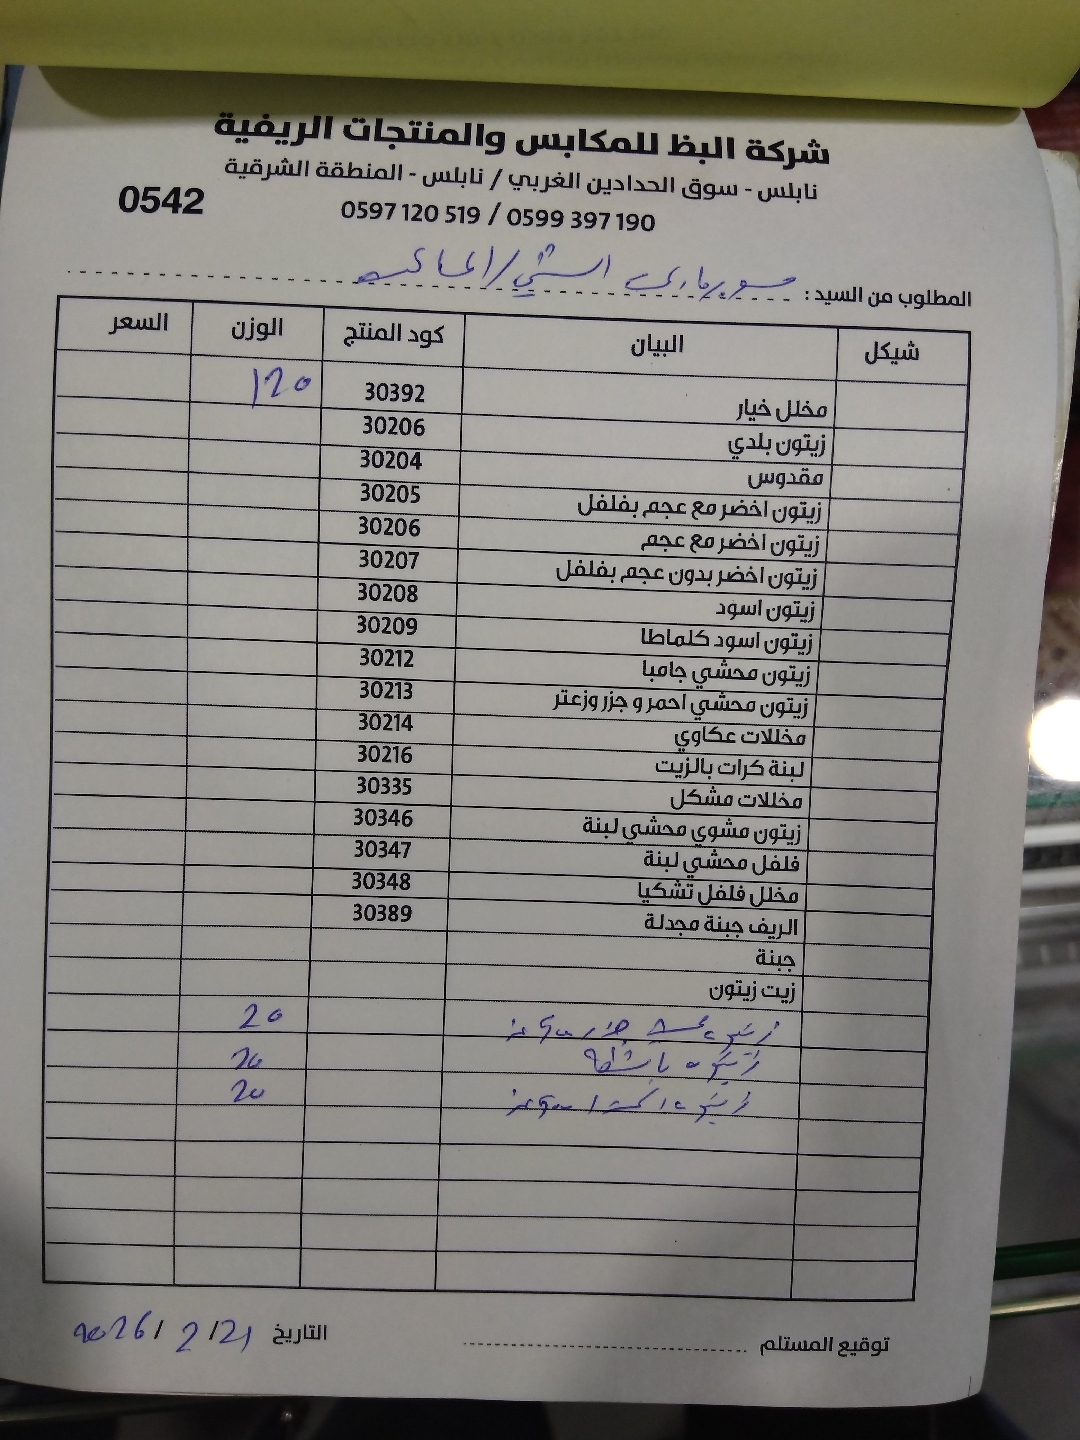 شركة البظ للمكابس والمنتجات الريفية
نابلس - سوق الحدادين الغربي / نابلس - المنطقة الشرقية
0542 0597 120 519 / 0599 397 190
المطلوب من السيد : سوبرماركت
شيكل البيان كود المنتج الوزن السعر
مخلل خيار 30392 120
زيتون بلدي 30206
مقدوس 30204
زيتون اخضر مع عجم بفلفل 30205
زيتون اخضر مع عجم 30206
زيتون اخضر بدون عجم بفلفل 30207
زيتون اسود 30208
زيتون اسود كلماطا 30209
زيتون محشي جامبا 30212
زيتون محشي احمر و جزر وزعتر 30213
مخللات عكاوي 30214
لبنة كرات بالزيت 30216
مخللات مشكل 30335
زيتون مشوي محشي لبنة 30346
فلفل محشي لبنة 30347
مخلل فلفل تشكيا 30348
الريف جبنة مجدلة 30389
جبنة
زيت زيتون
زيتون 20
زيتون
زيتون 20
توقيع المستلم
التاريخ 21/ 2 / 2026